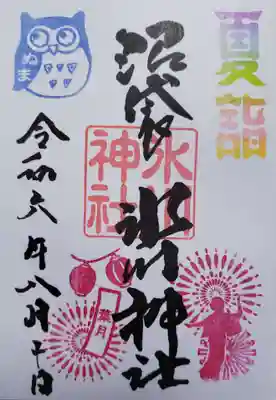 夏詣
沼袋氷川神社
氷川
神社
令和六年八月十日
ぬま
葉月